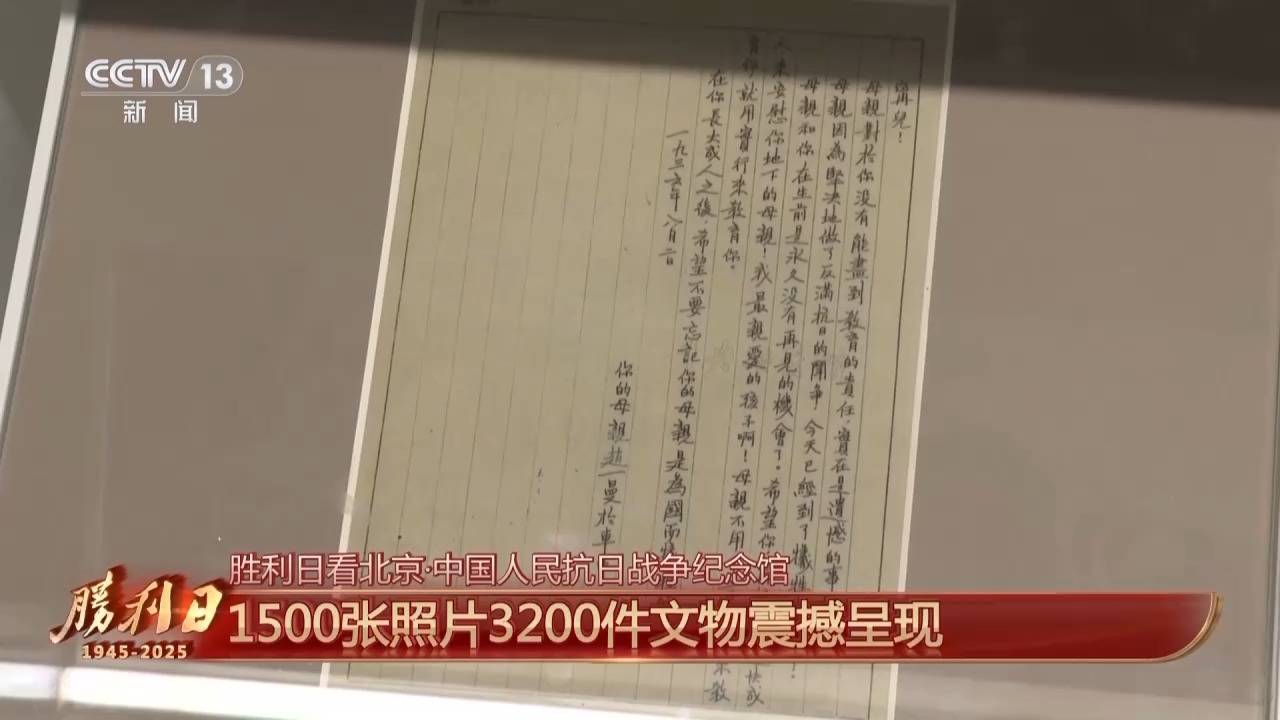 CCTV 13
新闻
寧兒！
母親對於你没有能盡到教育的責任，實在是遺憾的事
母親因為堅決地做了反滿抗日的鬥爭，今天已經到了犧牲
母親和你在生前是永久没有再見的機會了。希望你
人來安慰你地下的母親！我最親愛的孩子啊！母親不用
言行就用實行來教育你。
在你長大成人之後，希望不要忘記你的母親是為國而
一九三六年八月二日
你的母親趙一曼於車
快成
來教
胜利日看北京·中国人民抗日战争纪念馆
1500张照片3200件文物震撼呈现
勝利日
1945-2025